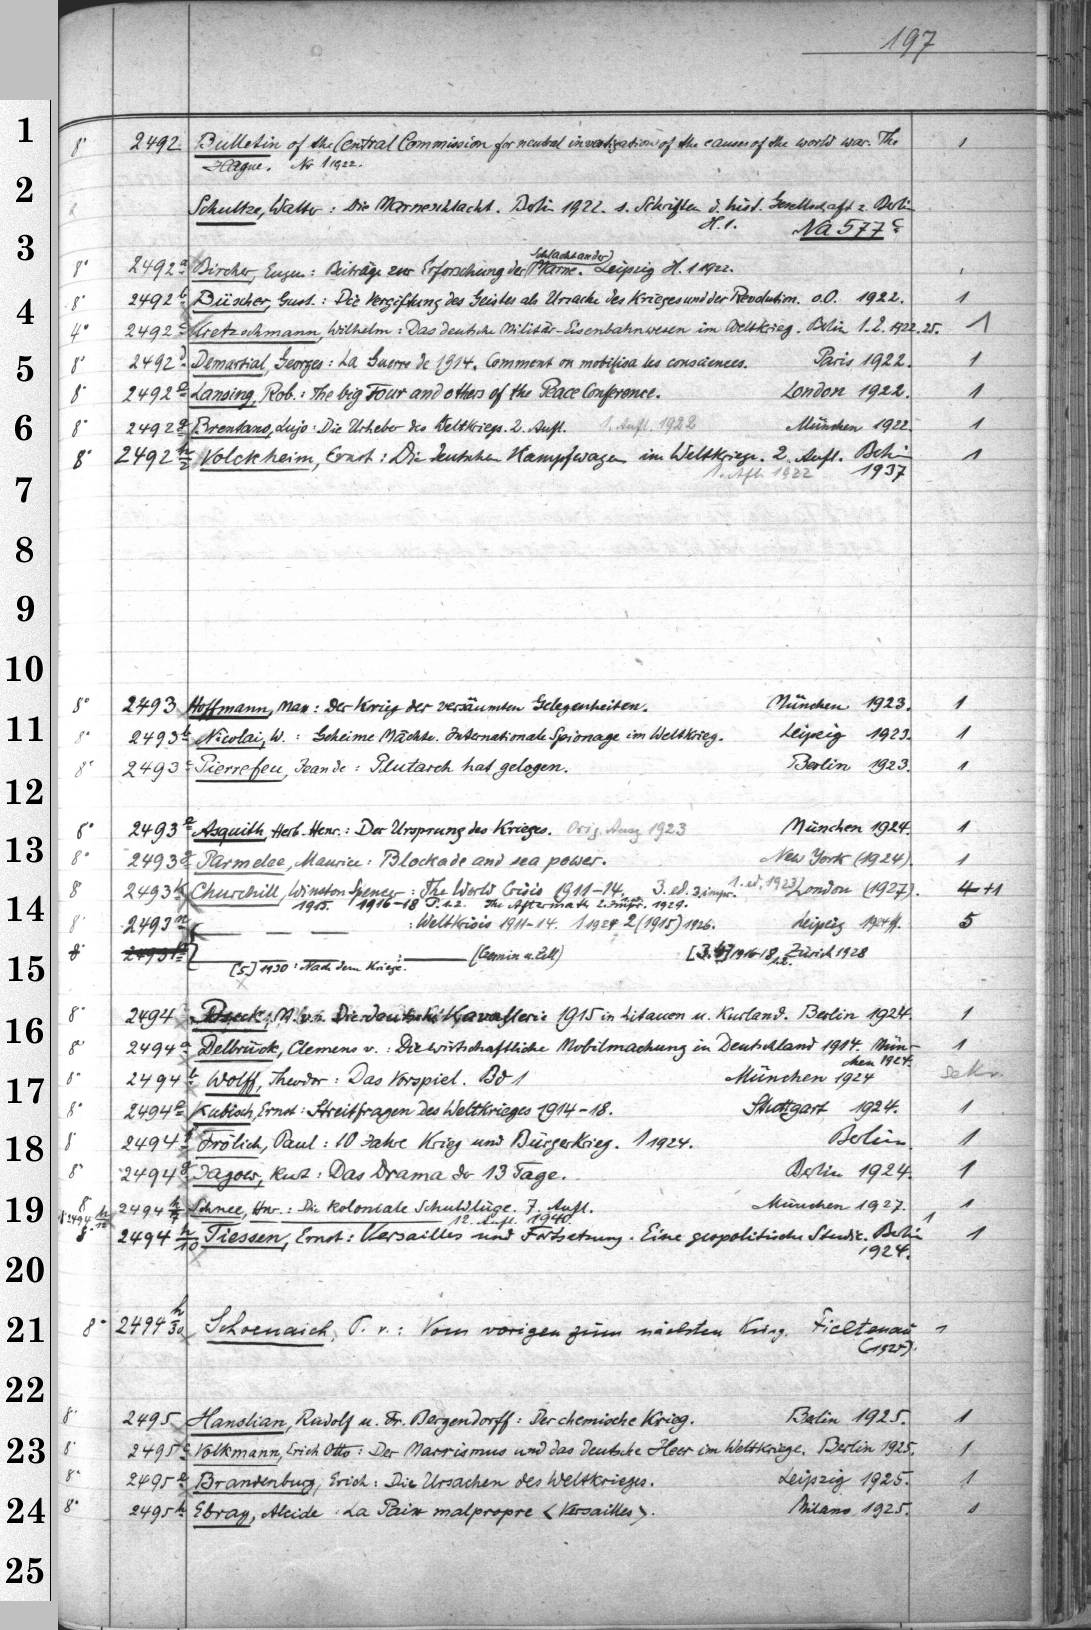 197
1
8° 2492 Bulletin of the Central Commission for neutral investigation of the causes of the world war. The 1
Hague. Nr 1 1922.
2
Schultze, Walter: Die Marneschlacht. Berlin 1922. s. Schriften d. hist. Gesellschaft z. Berlin
H. 1. Na 577 c
3
8° 2492 a Bircher, Eugen: Beiträge zur Erforschung der (Schlacht an der) Marne. Leipzig H. 1 1922.
4
8° 2492 b Büscher, Gust.: Die Vergiftung des Geistes als Ursache des Krieges und der Revolution. o.O. 1922. 1
4° 2492 c Kretzschmann, Wilhelm: Das deutsche Militär-Eisenbahnwesen im Weltkrieg. Berlin 1.2. 1922.25. 1
5
8° 2492 Demartial, Georges: La Guerre de 1914. Comment on mobilisa les consciences. Paris 1922. 1
8° 2492 e Lansing, Rob.: The big Four and others of the Peace Conference. London 1922. 1
6
8° 2492 g Brentano, Lujo: Die Urheber des Weltkriegs. 2. Aufl. 1. Aufl. 1922 München 1922 1
8° 2492 Volckheim, Ernst: Die deutschen Kampfwagen im Weltkriege. 2. Aufl. Berlin 1
7
1. Afl. 1922 1937
8
9
10
8° 2493 Hoffmann, Max: Der Krieg der versäumten Gelegenheiten. München 1923. 1
11
8° 2493 b Nicolai, W.: Geheime Mächte. Internationale Spionage im Weltkrieg. Leipzig 1923. 1
8° 2493 c Pierrefeu, Jean de: Plutarch hat gelogen. Berlin 1923. 1
12
8° 2493 e Asquith, Herb. Henr.: Der Ursprung des Krieges. Orig. Ausg 1923 München 1924. 1
13
8° 2493 g Parmelee, Maurice: Blockade and sea power. New York (1924). 1
1. ed. 1923)
8 2493 k Churchill, Winston Spencer: The World Crisis 1911-14. 3. ed. 3. impr. London (1927). 4 +1
14
1915. 1916-18 P. 1.2. The Aftermath 2. impr. 1929.
8° 2493 n — — — : Weltkrisis 1911-14. 1 1924 2 (1915) 1926. Leipzig 1924ff. 5
8° (Gemin u. Zell) 1916-18, Zürich 1928
15
[5] 1930: Nach dem Kriege.
8° 2494 Poseck, M. v.: Die deutsche Kavallerie 1915 in Litauen u. Kurland. Berlin 1924. 1
16
8° 2494 a Delbrück, Clemens v.: Die wirtschaftliche Mobilmachung in Deutschland 1914. Mün- 1
chen 1924.
17
8° 2494 b Wolff, Theodor: Das Vorspiel. Bd 1 München 1924 Sekr.
8° 2494 e Kabisch, Ernst: Streitfragen des Weltkrieges 1914-18. Stuttgart 1924. 1
18
8° 2494 f Frölich, Paul: 10 Jahre Krieg und Bürgerkrieg. 1 1924. Berlin 1
8° 2494 g Jagow, Kurt: Das Drama der 13 Tage. Berlin 1924. 1
19
8 2494 h/7 Schnee, Hnr.: Die koloniale Schuldlüge. 7. Aufl. München 1927. 1
2494 h/10 12. Aufl. 1940. 1
8° 2494 h/10 Tiessen, Ernst: Versailles und Fortsetzung. Eine geopolitische Studie. Berlin 1
1924.
20
21
8° 2494 h/30 Schoenaich, P. v.: Vom vorigen zum nächsten Krieg. Fichtenau 1
(1925).
22
8° 2495 Hanslian, Rudolf u. Fr. Bergendorff: Der chemische Krieg. Berlin 1925. 1
23
8° 2495 c Volkmann, Erich Otto: Der Marxismus und das deutsche Heer im Weltkriege. Berlin 1925. 1
8° 2495 e Brandenburg, Erich: Die Ursachen des Weltkrieges. Leipzig 1925. 1
24
8° 2495 h Ebray, Alcide La Paix malpropre <Versailles>. Milano 1925. 1
25